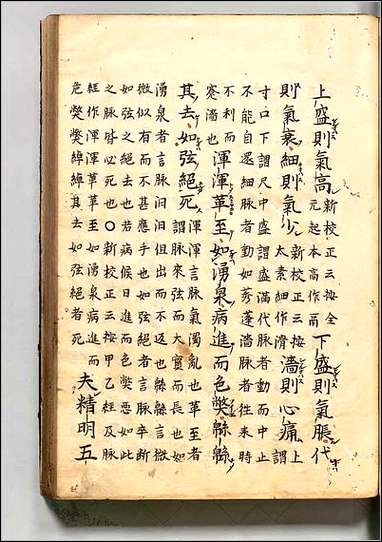 上盛則氣高
新校正云按全
元起本高作鬲
下盛則氣脹代
則氣衰細則氣少
新校正云按
太素細作滑
濇則心痛
上
謂
寸口下謂尺中盛謂盛滿代脈者動而中止
不能自還細脈者動如莠蓬濇脈者往來時
不利而
蹇濇也
渾渾革至如湧泉病進而色弊緜緜
其去如弦絕死
渾渾言脈氣濁亂也革至者
謂脈來弦而大實而長也如
湧泉者言脈汩汩但出而不返也緜緜言微
微似有而不甚應手也如弦絕者言脈卒斷
如弦之絕去也若病候日進而色弊惡如此
之脈皆必死也○新校正云按甲乙經及脈
經作渾渾革革至如湧泉病進而
危弊弊綽綽其去如弦絕者死
夫精明五